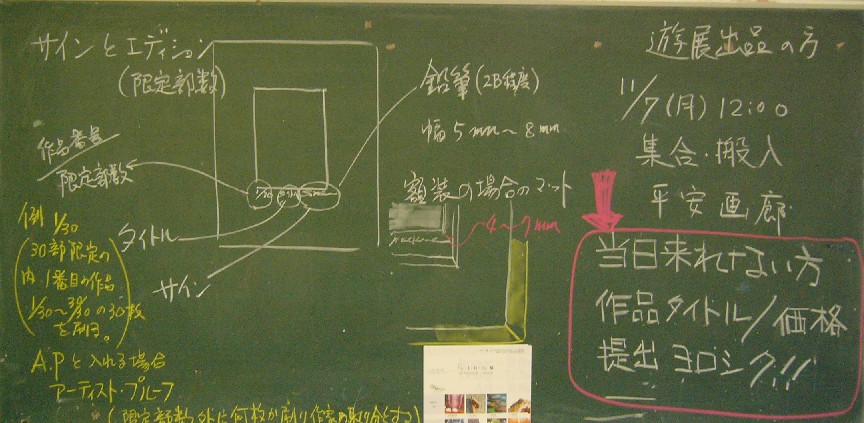 サインとエディション
(限定部数)
作品番号
限定部数
タイトル
サイン
例 1/30
(30部限定の
内 1番目の作品
1/30〜30/30の30枚
を刷る。)
A.Pと入れる場合
アーティスト・プルーフ
(限定部数外に何枚か刷り作家の取り分とする)
鉛筆(2B程度)
幅5mm〜8mm
額装の場合のマット
4〜7mm
遊展出品の方
11/7(月)12:00
集合・搬入
平安画廊
当日来れない方
作品タイトル/価格
提出ヨロシク!!